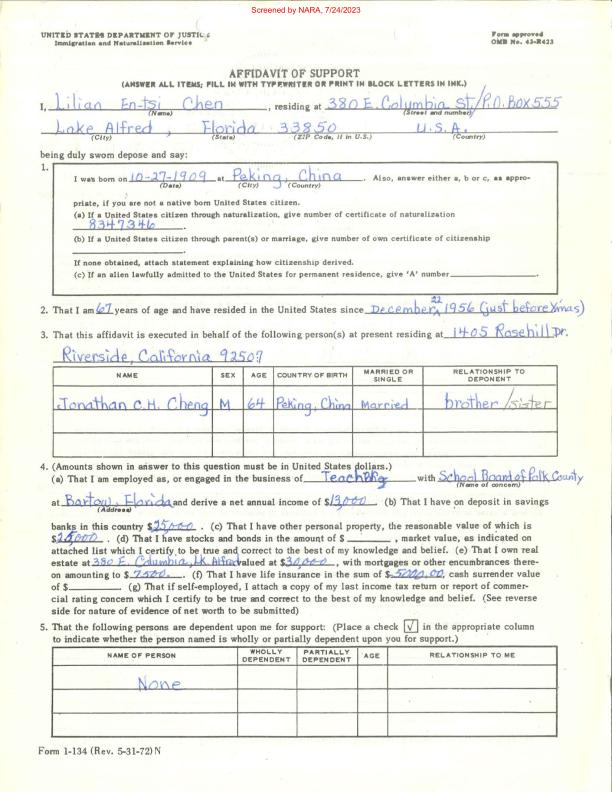 Screened by NARA, 7/24/2023
UNITED STATES DEPARTMENT OF JUSTICE
Immigration and Naturalization Service
Form approved
OMB No. 43-R423
AFFIDAVIT OF SUPPORT
(ANSWER ALL ITEMS; FILL IN WITH TYPEWRITER OR PRINT IN BLOCK LETTERS IN INK.)
I, Lilian En-tsi Chen, residing at 380 E. Columbia St./P.O. BOX 555
(Name) (Street and number)
Lake Alfred, Florida 33850 U.S.A.
(City) (State) (ZIP Code, if in U.S.) (Country)
being duly sworn depose and say:
1.
I was born on 10-27-1909 at Peking, China. Also, answer either a, b or c, as appro-
(Date) (City) (Country)
priate, if you are not a native born United States citizen.
(a) If a United States citizen through naturalization, give number of certificate of naturalization
8347346.
(b) If a United States citizen through parent(s) or marriage, give number of own certificate of citizenship
If none obtained, attach statement explaining how citizenship derived.
(c) If an alien lawfully admitted to the United States for permanent residence, give 'A' number
2. That I am 67 years of age and have resided in the United States since December 22, 1956 (just before Xmas)
3. That this affidavit is executed in behalf of the following person(s) at present residing at 1405 Rosehill Dr.
Riverside, California 92507
NAME SEX AGE COUNTRY OF BIRTH MARRIED OR SINGLE RELATIONSHIP TO DEPONENT
Jonathan C.H. Cheng M 64 Peking, China Married brother/sister
4. (Amounts shown in answer to this question must be in United States dollars.)
(a) That I am employed as, or engaged in the business of Teaching with School Board of Polk County
(Name of concern)
at Bartow, Florida and derive a net annual income of $13,000 (b) That I have on deposit in savings
(Address)
banks in this country $25,000. (c) That I have other personal property, the reasonable value of which is
$25,000. (d) That I have stocks and bonds in the amount of $, market value, as indicated on
attached list which I certify to be true and correct to the best of my knowledge and belief. (e) That I own real
estate at 380 E. Columbia, Lk. Alfred valued at $30,000, with mortgages or other encumbrances there-
on amounting to $7500. (f) That I have life insurance in the sum of $5000.00, cash surrender value
of $. (g) That if self-employed, I attach a copy of my last income tax return or report of commer-
cial rating concern which I certify to be true and correct to the best of my knowledge and belief. (See reverse
side for nature of evidence of net worth to be submitted)
5. That the following persons are dependent upon me for support: (Place a check √ in the appropriate column
to indicate whether the person named is wholly or partially dependent upon you for support.)
NAME OF PERSON WHOLLY DEPENDENT PARTIALLY DEPENDENT AGE RELATIONSHIP TO ME
None
Form I-134 (Rev. 5-31-72) N